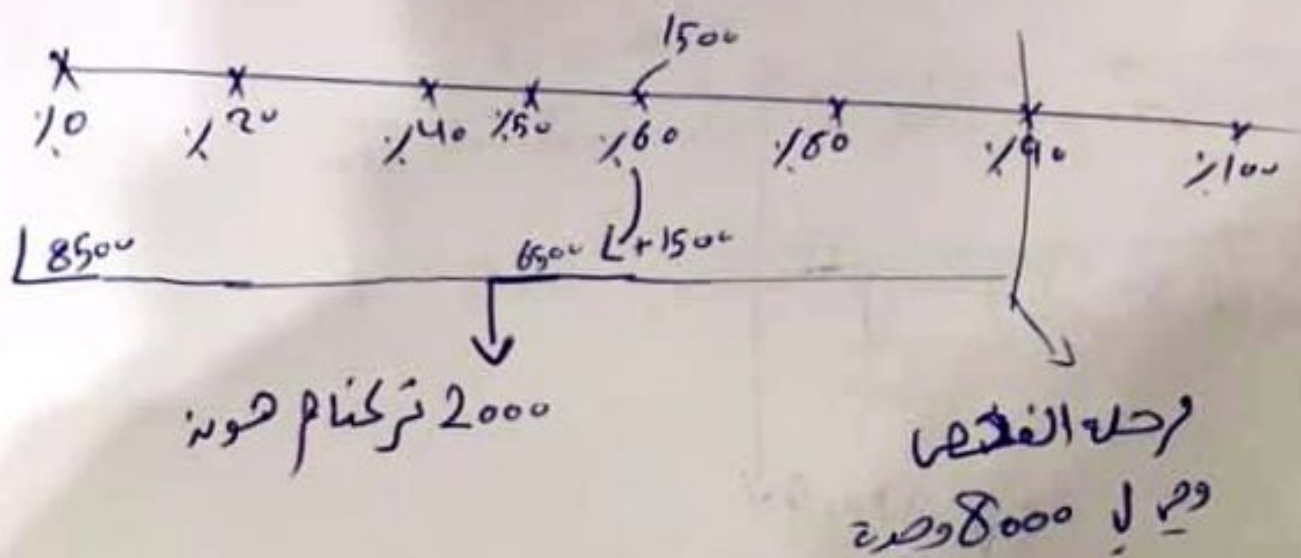 1500
%0 %20 %40 %50 %60 %80 %90 %100
8500 6500 +1500
2000 تركناهم هون
مرحلة الفحص
وصل ل 8000 وحدة